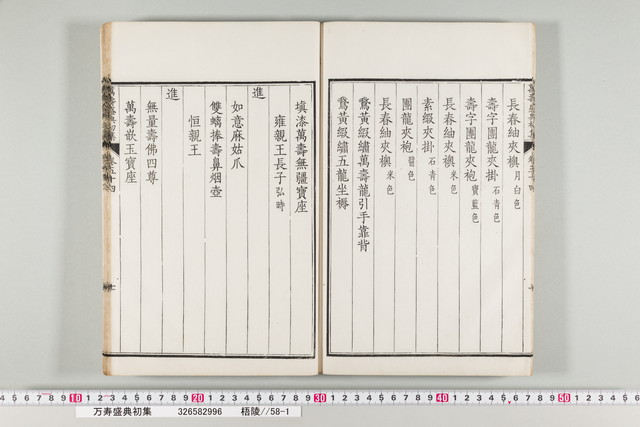 長春紬夾襖月白色
壽字團龍夾掛石青色
壽字團龍夾袍寶藍色
長春紬夾襖米色
素緞夾掛石青色
團龍夾袍醬色
長春紬夾襖米色
鵞黃緞繡萬壽龍引手靠背
鵞黃緞繡五龍坐褥
填漆萬壽無疆寶座
雍親王長子弘時
進
如意麻姑爪
雙螭捧壽鼻烟壺
恒親王
進
無量壽佛四尊
萬壽嵌玉寶座
10 20 30 40 50
万寿盛典初集 326582996 梧陵//58-1